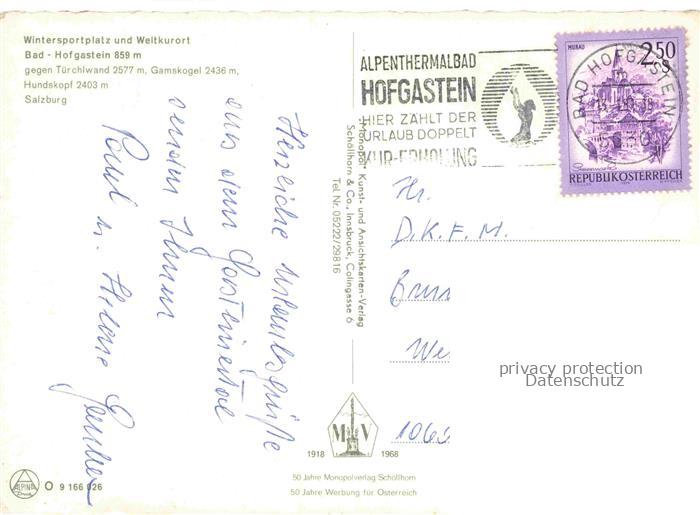 Wintersportplatz und Weltkurort
Bad - Hofgastein 859 m
gegen Türchlwand 2577 m, Gamskogel 2436 m,
Hundskopf 2403 m
Salzburg
ALPENTHERMALBAD
HOFGASTEIN
HIER ZÄHLT DER
URLAUB DOPPELT
KUR-ERHOLUNG
MURAU
2.50
BAD HOFGASTEIN
5630
REPUBLIK ÖSTERREICH
Herzliche Urlaubsgrüße
aus dem Gasteinertal
senden Ihnen
Paul u. Helene
"Monopol" Kunst- und Ansichtskarten-Verlag
Schöllhorn & Co., Innsbruck, Colingasse 6
Tel. Nr. 05222/29816
Hr.
D.K.F.M.
We
privacy protection
Datenschutz
M V
1918 1968
50 Jahre Monopolverlag Schöllhorn
50 Jahre Werbung für Österreich
ALPINA
Druck
O 9 166 026